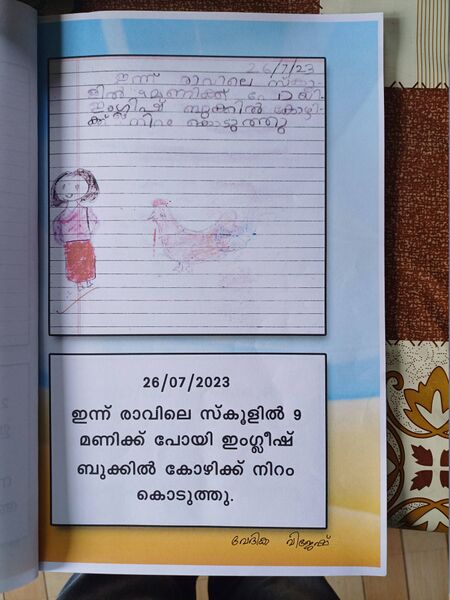 26/7/23
ഇന്ന് രാവിലെ സ്കൂ
ളിൽ 9 മണിക്ക് പോയി
ഇംഗ്ലീഷ് ബുക്കിൽ കോഴി
ക്ക് നിറം കൊടുത്തു
26/07/2023
ഇന്ന് രാവിലെ സ്കൂളിൽ 9
മണിക്ക് പോയി ഇംഗ്ലീഷ്
ബുക്കിൽ കോഴിക്ക് നിറം
കൊടുത്തു.
വേദിക വിജേഷ്